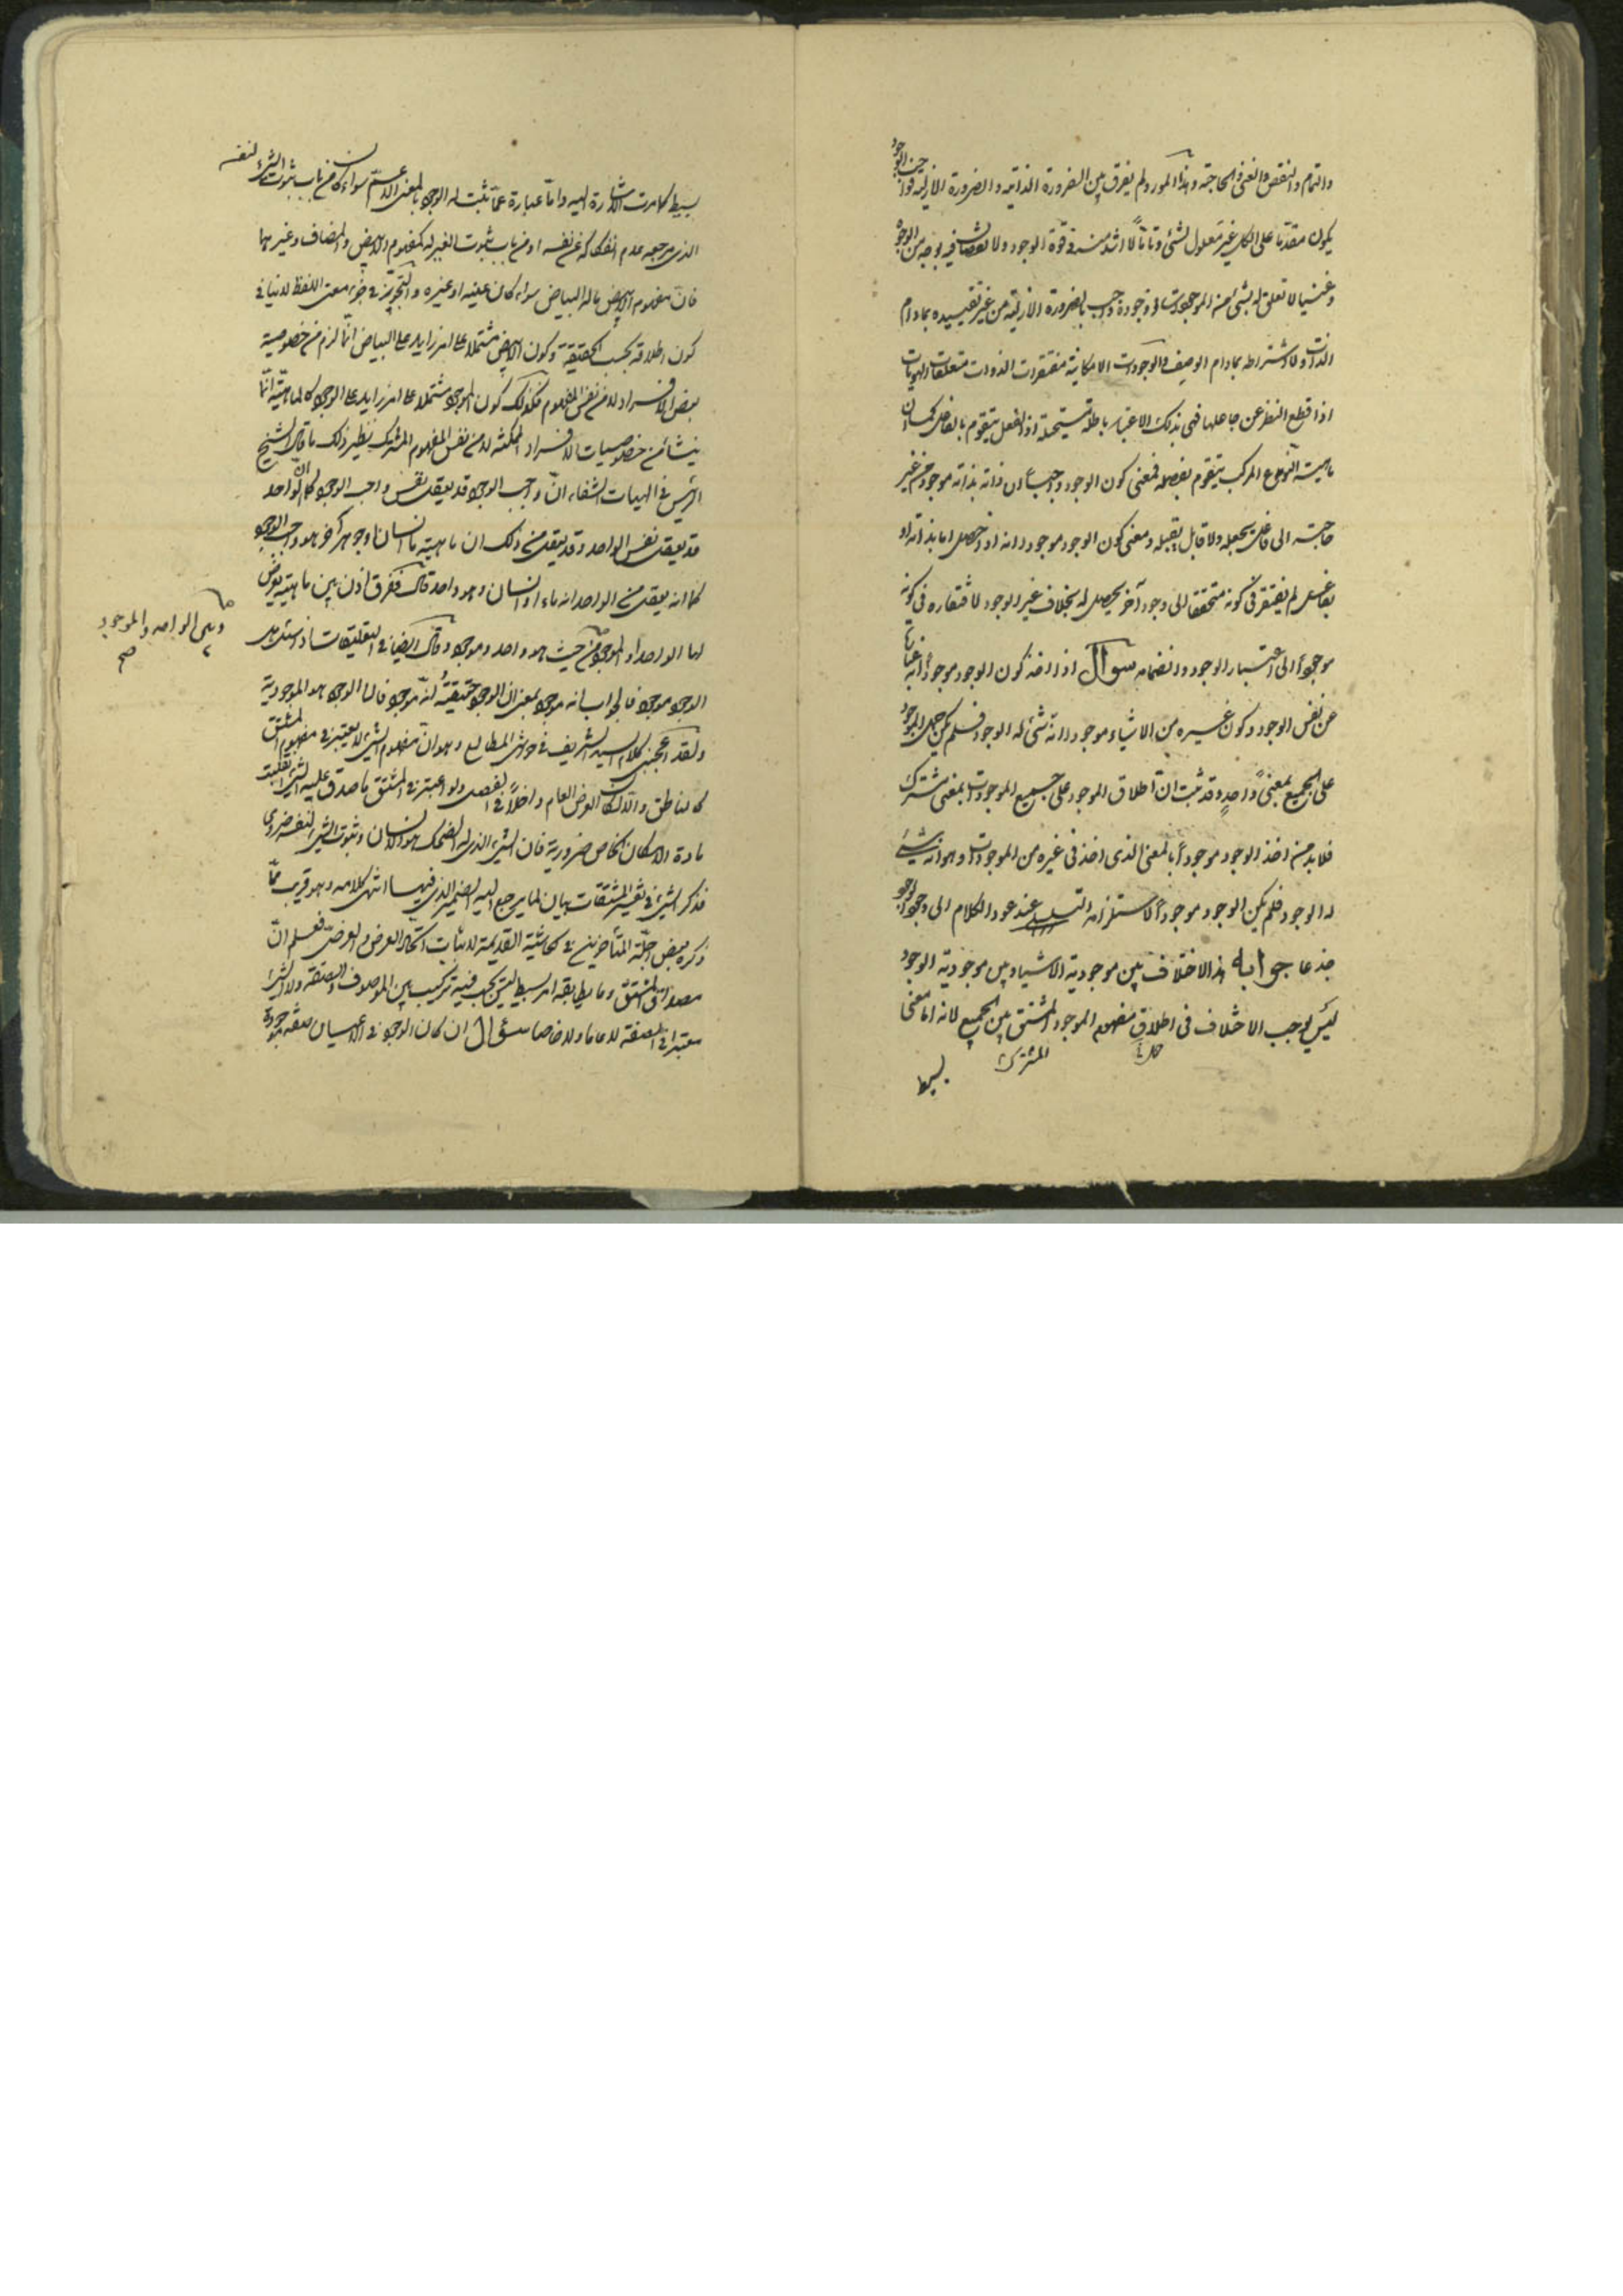 والتمام والنقص والغنى والحاجة وهذا المورد لم يفرق بين الضرورة الذاتية والضرورة الازلية فواجب الوجود
يكون مقدما على الكل غير معلول لشئ وتاما لا اشد منه فى قوة الوجود ولا نقصان فيه بوجه من الوجوه
وغنيا لا تعلق له بشئ من الموجودات اذ وجوده واجب بالضرورة الازلية من غير تقييده بمادام
الذات ولا اشتراطه بمادام الوصف والوجودات الامكانية مفتقرات الذوات متعلقات الهويات
اذا قطع النظر عن جاعلها فهى بذلك الاعتبار باطلة مستحيلة اذ الفعل يتقوم بالفاعل كما ان
ماهية النوع المركب يتقوم بفصله فمعنى كون الوجود واجبا ان ذاته بذاته موجود من غير
حاجة الى فاعل يجعله ولا قابل يقبله ومعنى كون الوجود موجودا انه اذا حصل اما بذاته او
بفاعل لم يفتقر فى كونه متحققا الى وجود آخر يحصل له بخلاف غير الوجود لافتقاره فى كونه
موجودا الى اعتبار الوجود وانضمامه سوال اذا اخذ كون الوجود موجودا انه عبارة
عن نفس الوجود وكون غيره من الاشياء موجودا انه شئ له الوجود فلم يكن حمل الوجود
على الجميع بمعنى واحد وقد ثبت ان اطلاق الموجود على جميع الموجودات بمعنى مشترك
فلابد من اخذ الوجود موجودا بالمعنى الذى اخذ فى غيره من الموجودات وهو انه شئ
له الوجود فلم يكن الوجود موجودا لاستلزامه التسلسل عند عود الكلام الى وجود الوجود
جذعا جوابه هذا الاختلاف بين موجودية الاشياء وبين موجودية الوجود
ليس يوجب الاختلاف فى اطلاق مفهوم الموجود المشتق بين الجميع لانه اما معنى
المشترك
بسيط
بسيط كما مرت الاشارة اليه واما عبارة عما ثبت له الوجود بالمعنى الاعم سواء كان من باب ثبوت الشئ لنفسه
الذى مرجعه عدم انفكاكه عن نفسه او من باب ثبوت الغير له كمفهوم الابيض والمضاف وغيرهما
فان مفهوم الابيض ما له البياض سواء كان عينه او غيره والتجوز فى جزء معنى اللفظ لا ينافى
كون اطلاقه بحسب الحقيقة وكون الابيض مشتملا على امر زايد على البياض انما لزم من خصوصية
بعض الافراد لا من نفس المفهوم فكذلك كون الموجود مشتملا على امر زايد على الوجود كالماهية انما
ينشأ من خصوصيات الافراد الممكنة لا من نفس المفهوم المشترك نظير ذلك ما قال الشيخ
الرئيس فى الهيات الشفاء ان واجب الوجود قد يعقل نفس واجب الوجود كما ان الواحد
قد يعقل نفس الواحد وقد يعقل من ذلك ان ماهية ما انسان او جوهر آخر هو واجب الوجود
كما انه يعقل من الواحد انه ماء او انسان وهو واحد قال ففرق اذن بين ماهية يعرض
لها الواحد او الموجود من حيث هو واحد وموجود وقال ايضا فى التعليقات اذا سئل هل
وبين الواحد والموجود صح
الوجود موجود فالجواب انه موجود بمعنى ان الوجود حقيقة انه موجود فان الوجود هو الموجودية
ولقد اعجبنى كلام السيد الشريف فى حواشى المطالع وهو ان مفهوم الشئ لا يعتبر فى مفهوم المشتق
كالناطق والا لكان العرض العام داخلا فى الفصل ولو اعتبر فى المشتق ما صدق عليه الشئ انقلبت
مادة الامكان الخاص ضرورية فان الشئ الذى له الضحك هو الانسان وثبوت الشئ لنفسه ضرورى
فذكر الشئ فى تفسير المشتقات بيان لما يرجع اليه الضمير الذى فيها انتهى كلامه وهو قريب مما
ذكره بعض اجلة المتأخرين فى الحاشية القديمة لاثبات اتحاد العرض والعرضى فعلم ان
مصداق المشتق وما يطابقه امر بسيط ليس يجب فيه تركيب بين الموصوف والصفة ولا الشئ
معتبرا فى الصفة لا عاما ولا خاصا سؤال ان كان الوجود فى الاعيان صفة موجودة